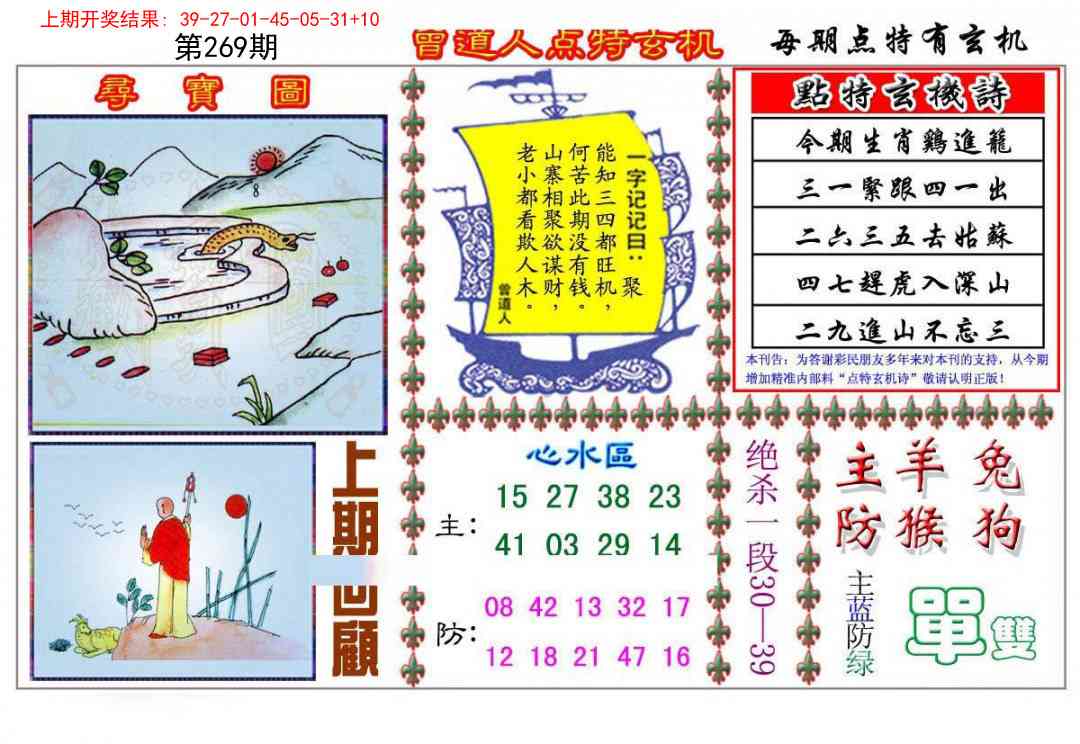 上期开奖结果：39-27-01-45-05-31+10
第269期
曾道人点特玄机
每期点特有玄机
尋寶圖
一字记记曰：聚
能知三四都旺机，
何苦此期没有钱。
山寨相聚欲谋财，
老小都看欺人木。
曾道人
點特玄機詩
今期生肖鷄進籠
三一緊跟四一出
二六三五去姑蘇
四七趕虎入深山
二九進山不忘三
本刊告：为答谢彩民朋友多年来对本刊的支持，从今期
增加精准内部料“点特玄机诗”敬请认明正版！
上期回顧
心水區
主：
15 27 38 23
41 03 29 14
防：
08 42 13 32 17
12 18 21 47 16
绝杀一段30—39
主羊兔
防猴狗
主蓝防绿
單雙